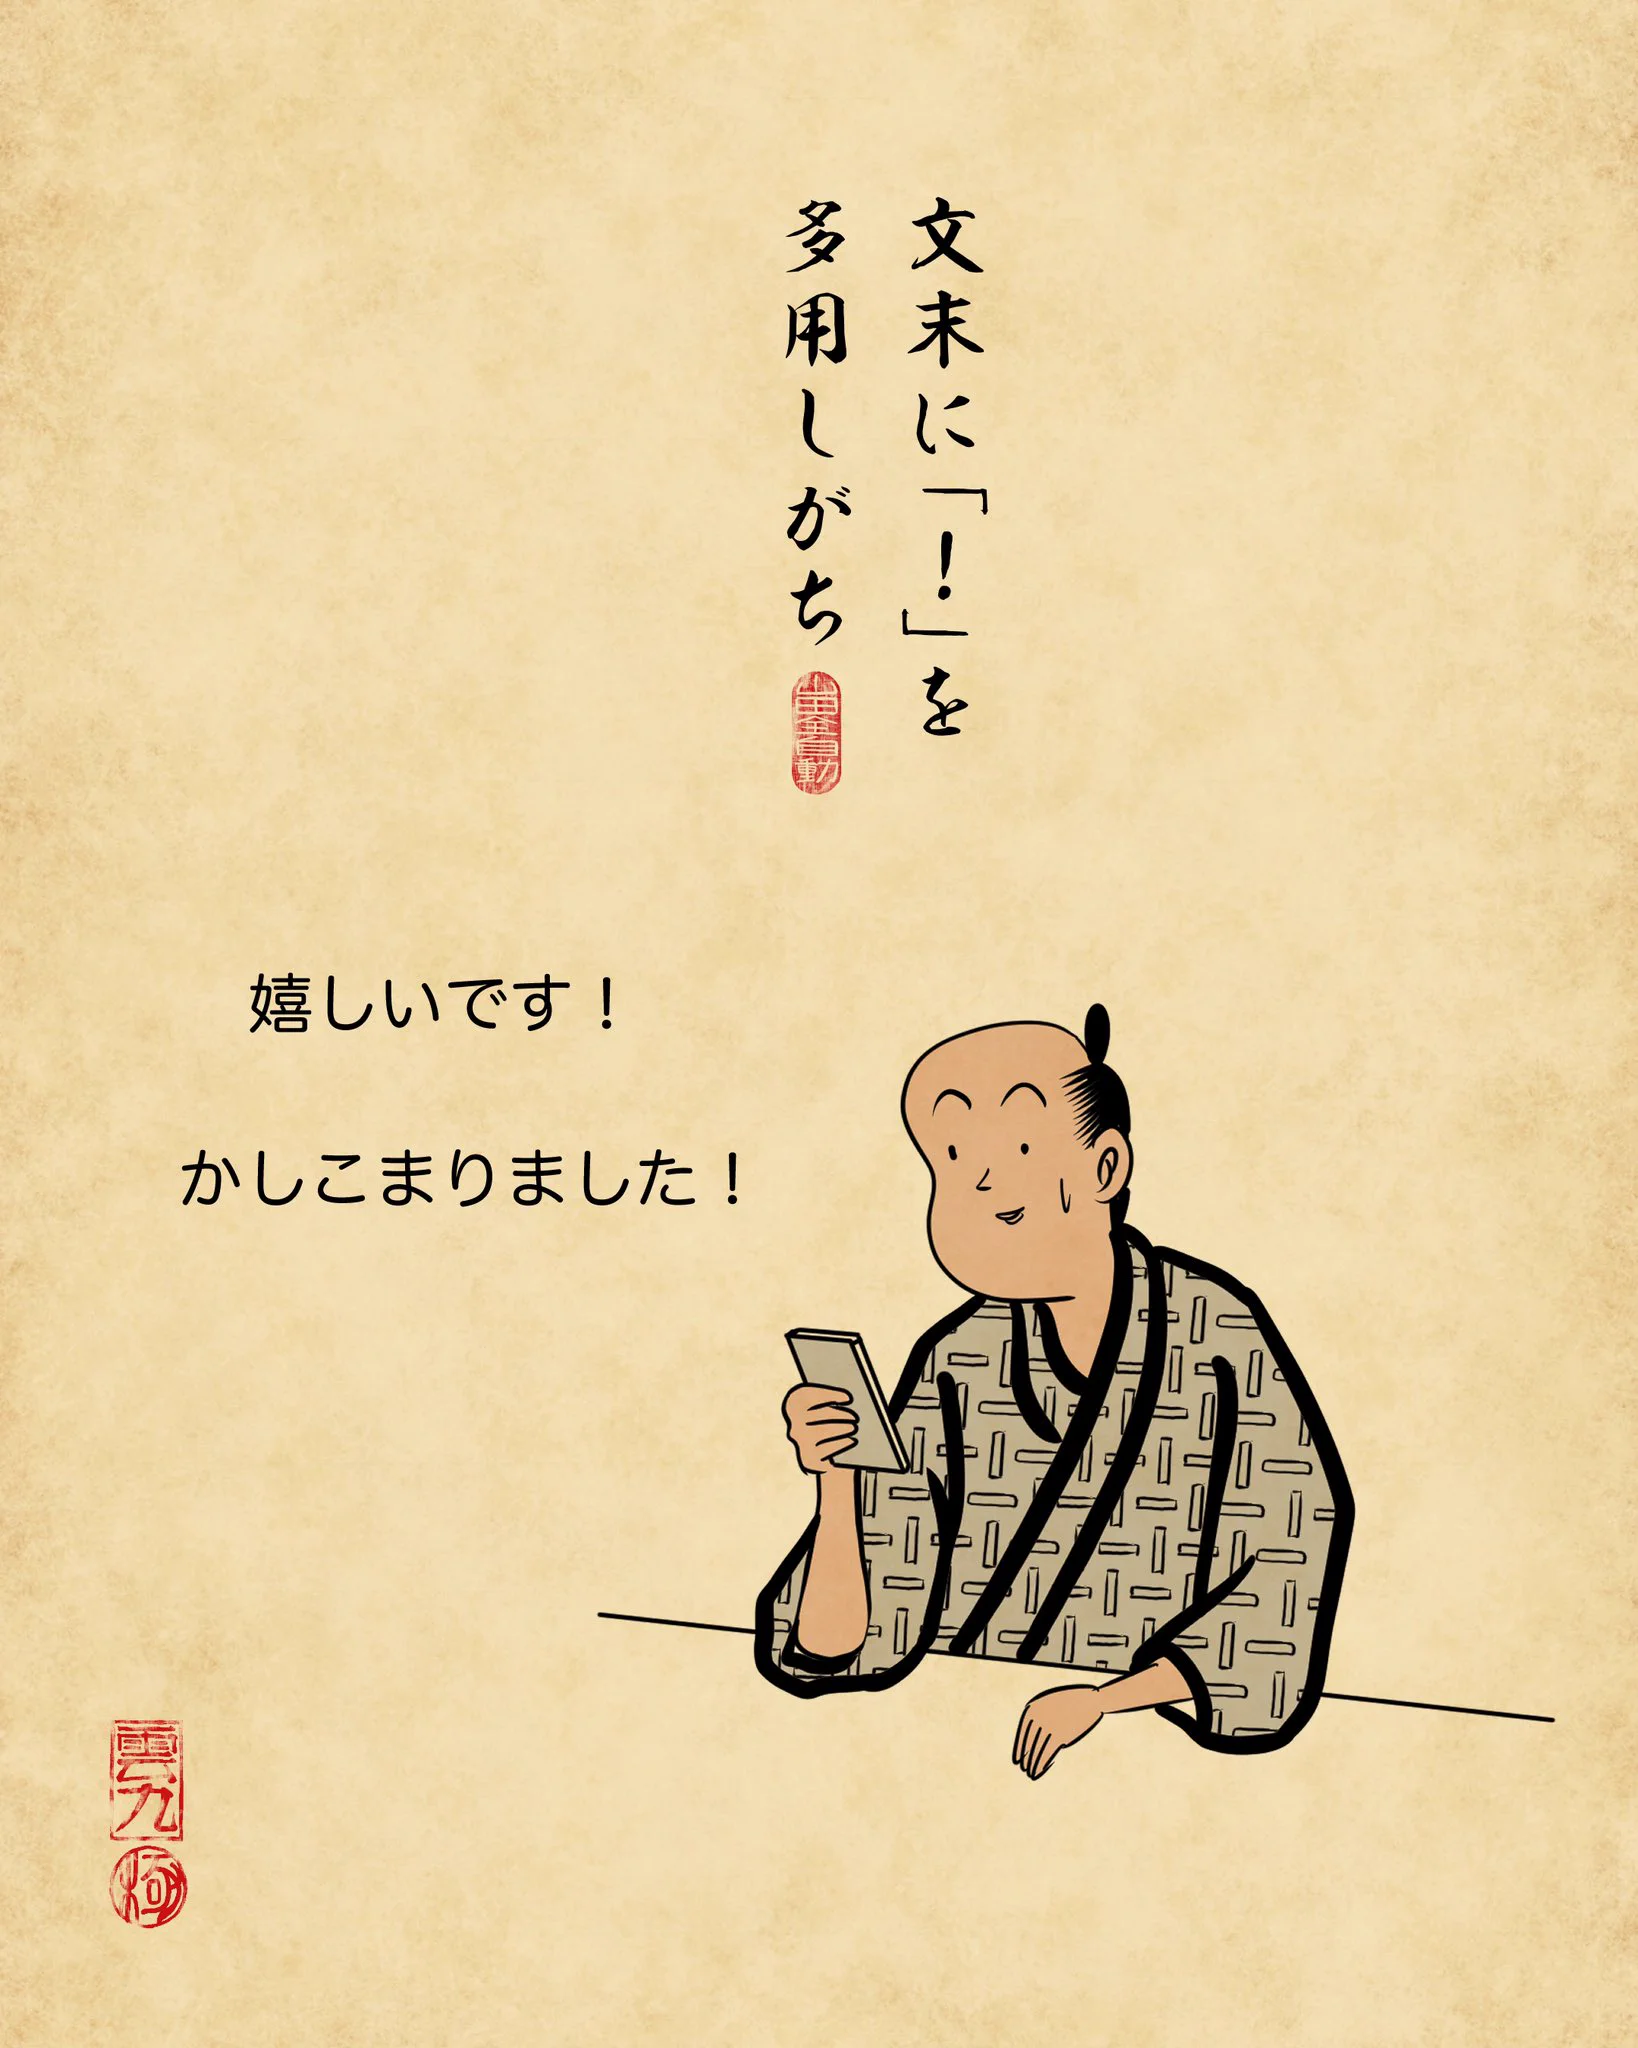 文末に「！」を
多用しがち
山田全自動
嬉しいです！
かしこまりました！
雲九
極